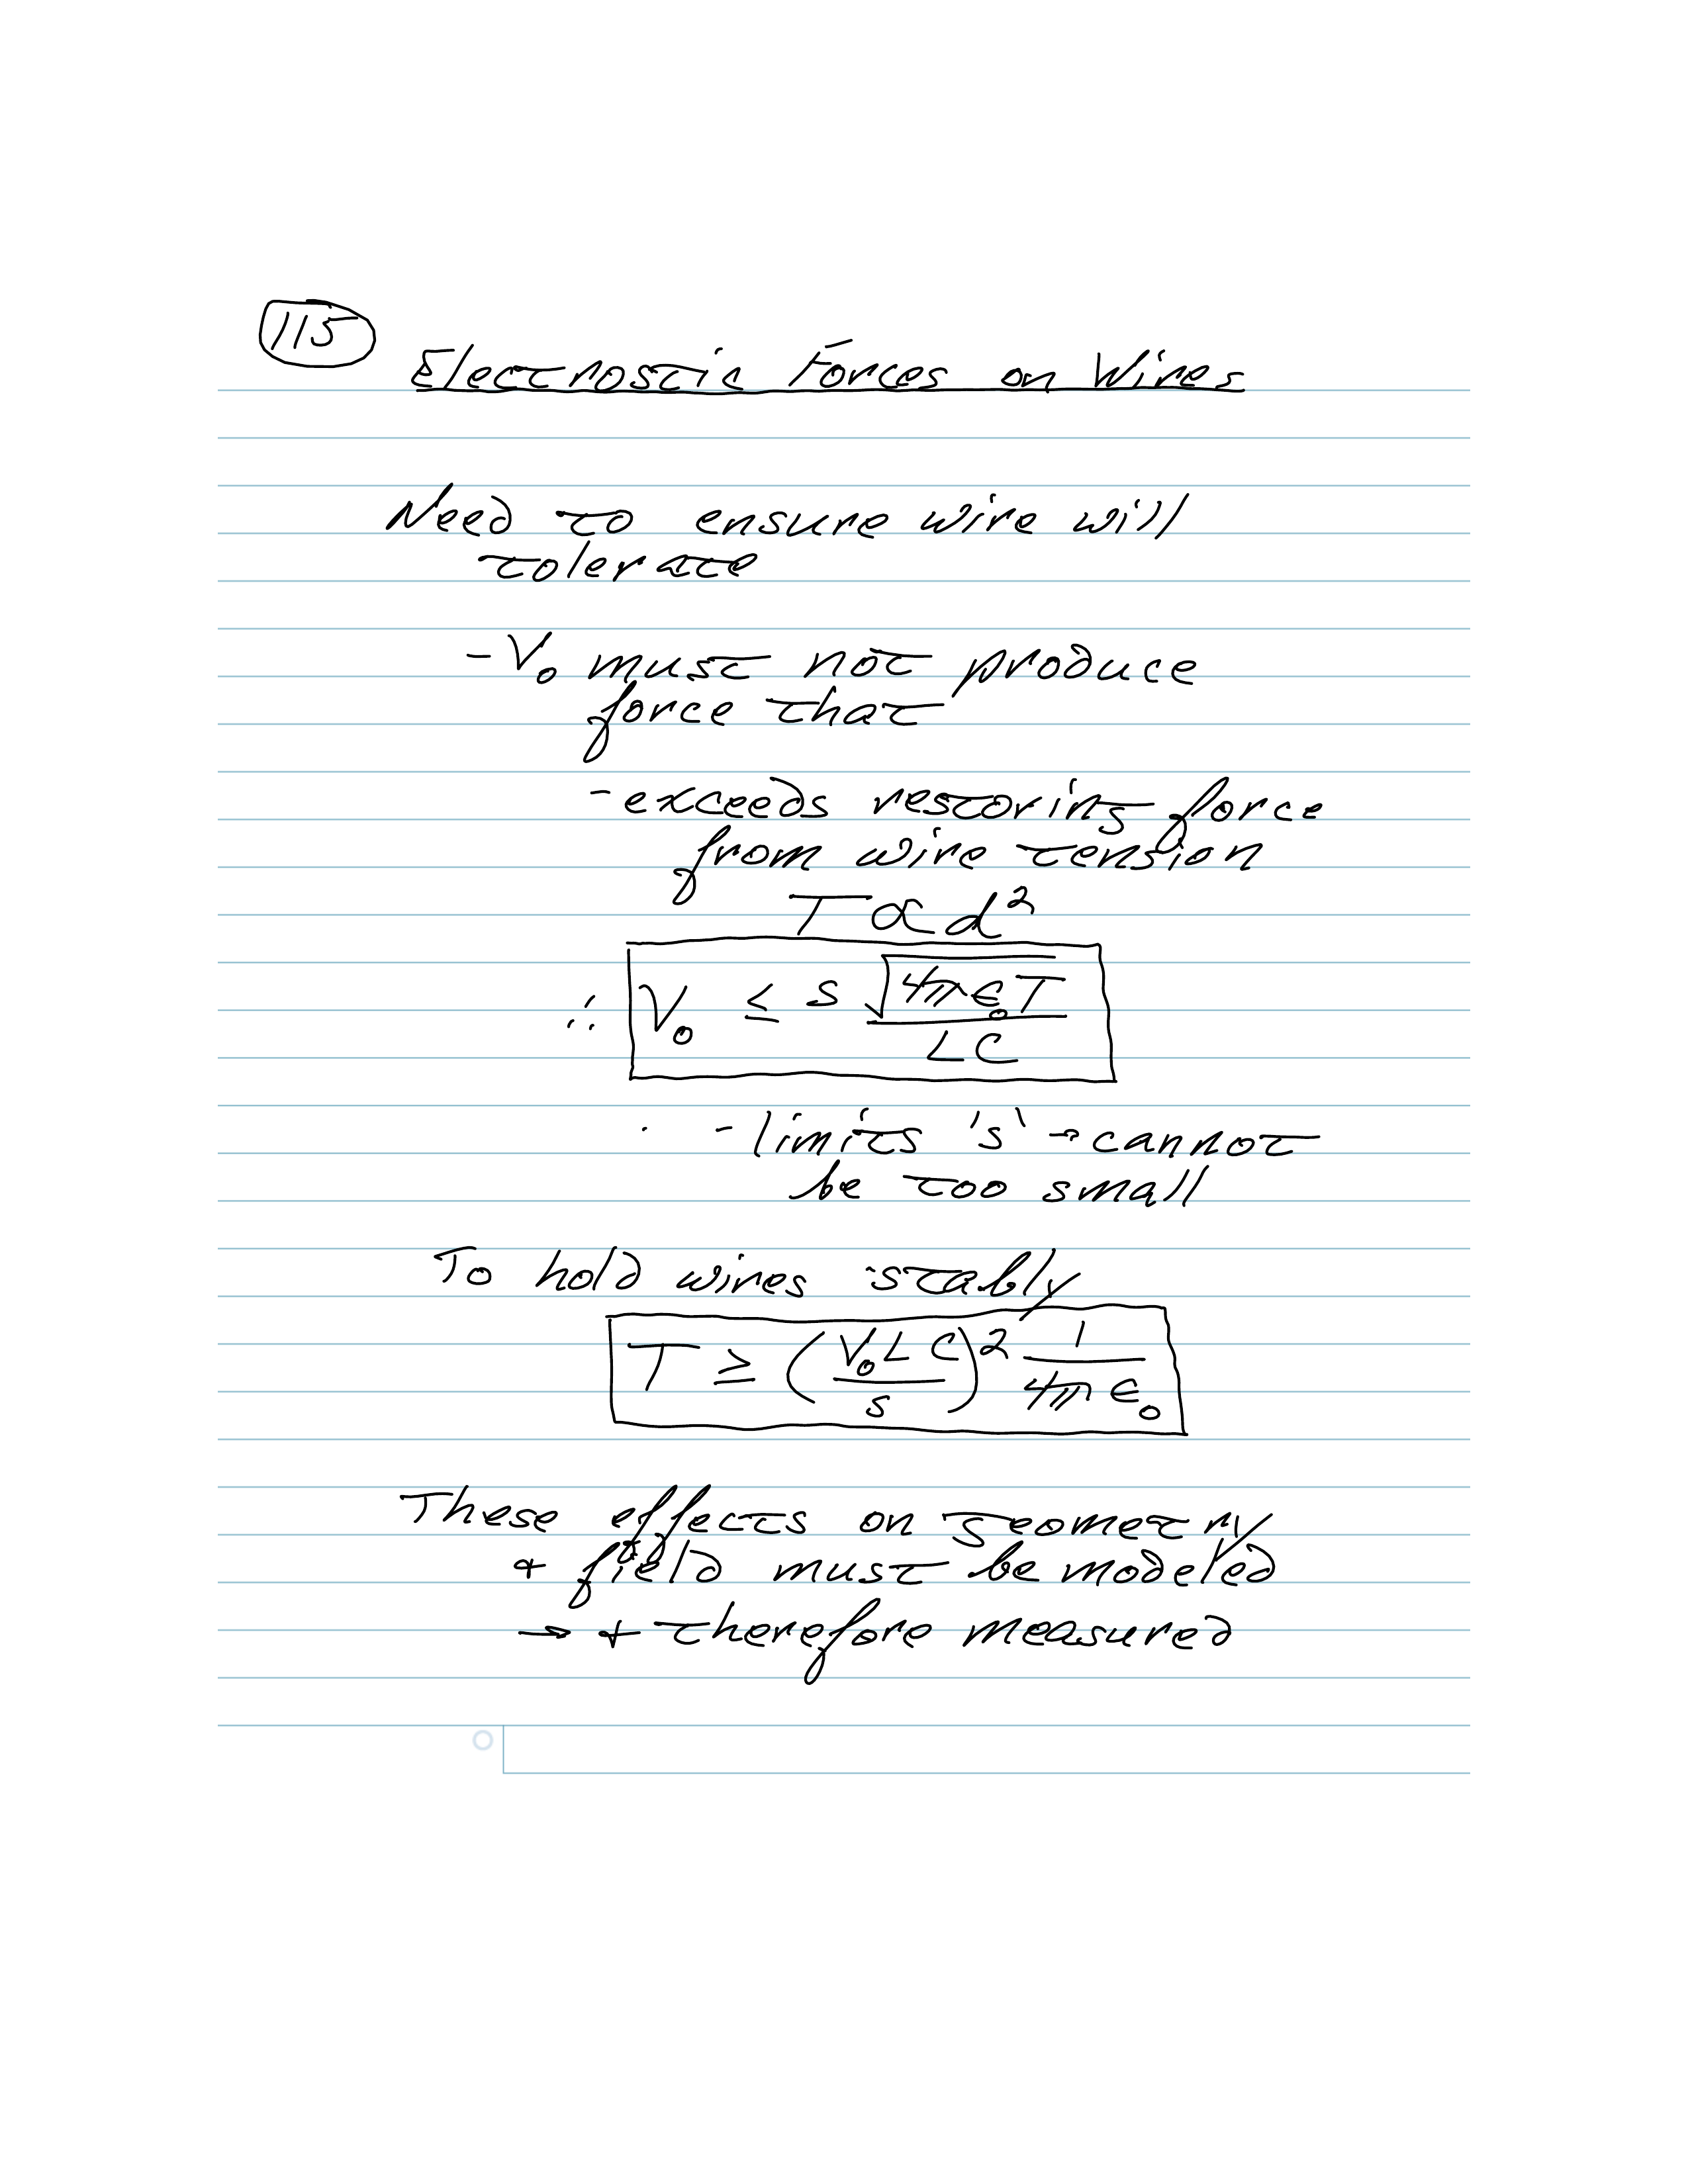 115
Electrostic Forces on Wires
Need to ensure wire will
tolerate
- V₀ must not produce
force that
- exceeds restoring force
from wire tension
T ∝ d²
∴ V₀ ≤ s √(4πε₀T) / LC
- limits 's' → cannot
be too small
To hold wires stably
T ≥ (V₀LC / s)² 1 / 4πε₀
These effects on geometry
+ field must be modeled
→ + therefore measured